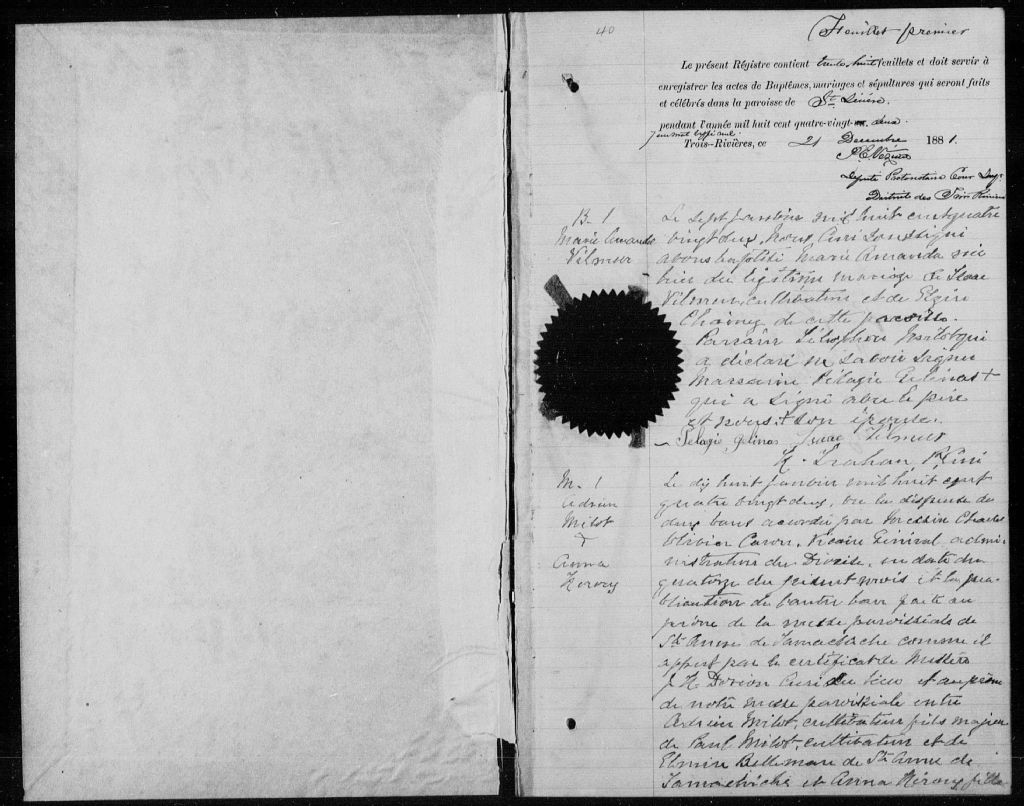 40
Feuillet premier
Le présent Régistre contient trente huit feuillets et doit servir à
enregistrer les actes de Baptêmes, mariages et sépultures qui seront faits
et célébrés dans la paroisse de St Sévère.
pendant l'année mil huit cent quatre-vingt- deux.
Trois--Rivières, ce 21 Decembre 1881.
Députe Protonotaire Cour Supr
District des Trois Rivières
B. 1
Marie Amanda
Vilmur
Le sept janvier mil huit cent quatre
vingt deux, Nous, Curé soussigné
avons baptisé Marie Amanda née
hier du légitime mariage de Isaac
Vilmur, cultivateur et de
de cette paroisse.
Parrain Milot qui
a déclaré ne savoir signer
Marraine Pélagie Gelinas +
qui a signé avec le père
et nous. + son épouse.
Pelagie gelinas Isaac Vilmur
Trahan Ptre Curé
M. 1
Adrien
Milot
&
Anna
Le dix huit janvier mil huit cent
quatre vingt deux, vu la dispense de
deux bans accordée par Messire Charles
Olivier Caron, Vicaire Général admi-
nistrateur du Diocèse, en date du
quatorze du présent mois et la pu-
blication de l'autre ban faite au
prône de la messe paroissiale de
Ste Anne de Yamachiche comme il
appert par le certificat de Messire
Dorion Curé du lieu et au prône
de notre messe paroissiale entre
Adrien Milot, cultivateur fils majeur
de Paul Milot, cultivateur et de
Elmire Bellemare de Ste Anne de
Yamachiche et Anna fille